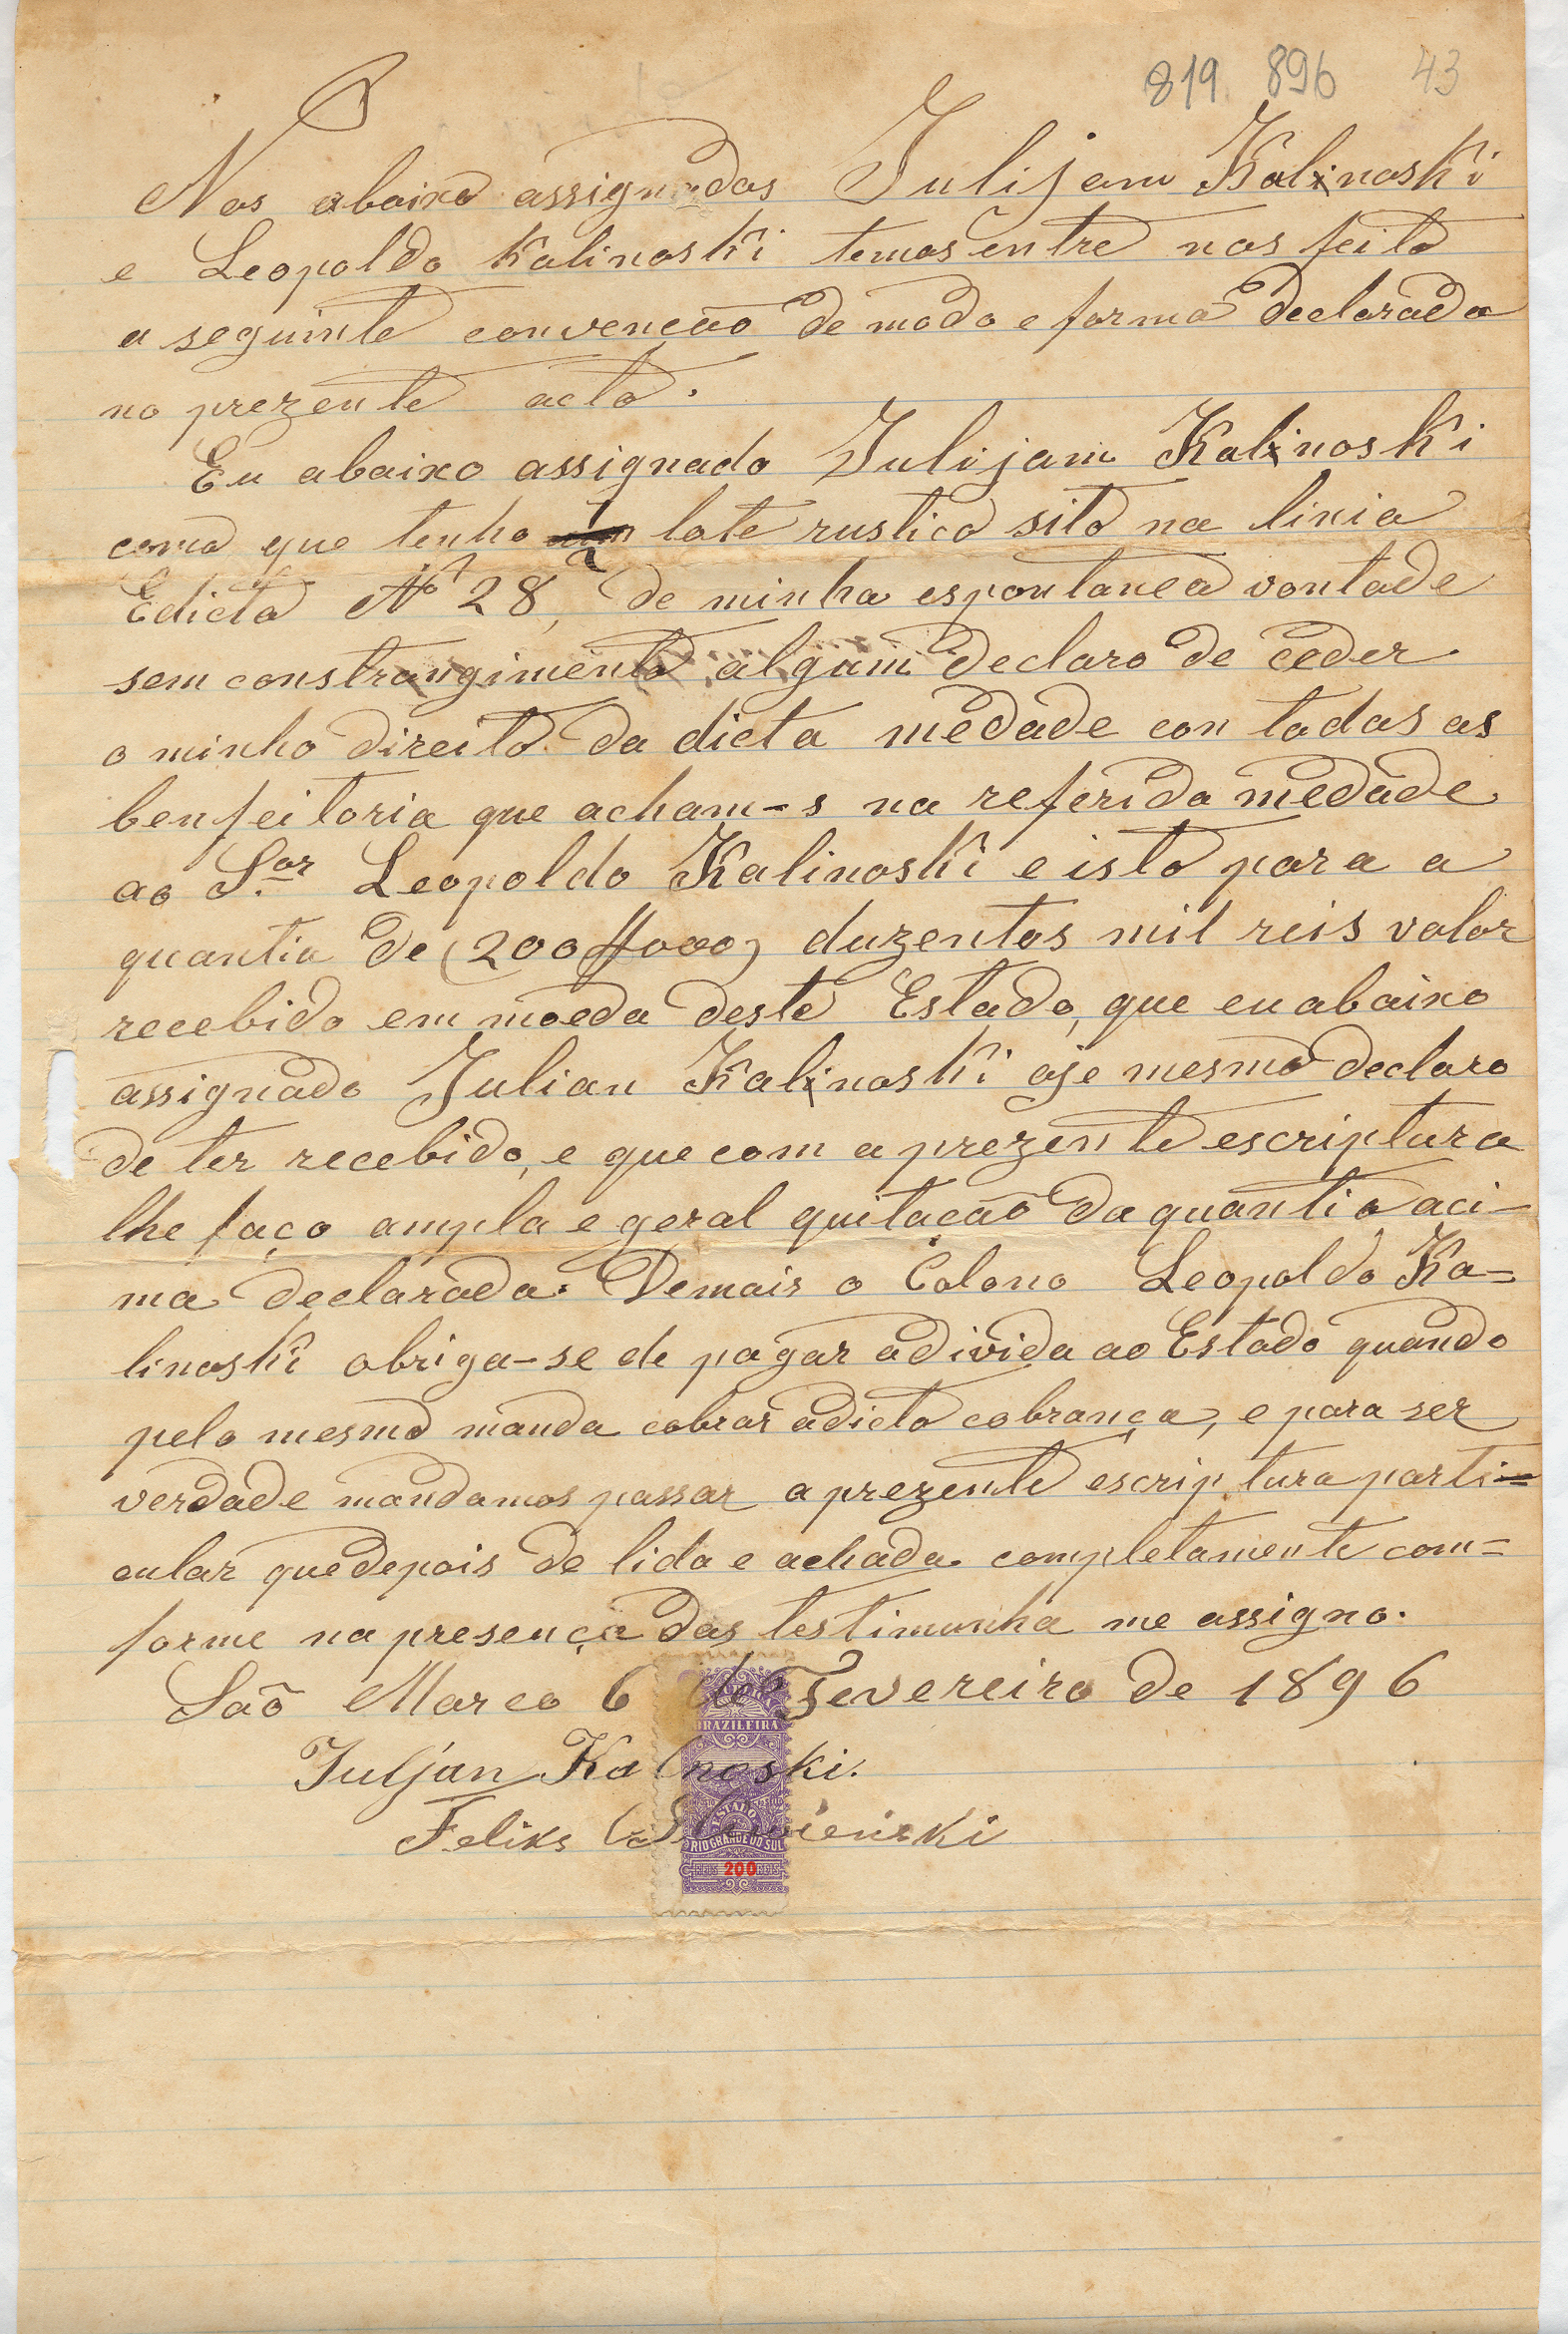 819 896 43
Nos abaixo assignados Julijam Kalinoski
e Leopoldo Kalinoski temos entre nos feito
a seguinte convencão de modo e forma declarada
no prezente acto.
Eu abaixo assignado Julijam Kalinoski
como que tenho 1/2 lote rustico sito na linia
Edicta Nº 28, de minha espontanea vontade
sem constrangimento algum declaro de ceder
o minho direito da dicta medade con todas as
benfeitoria que acham-s na referida medade
ao Sor Leopoldo Kalinoski e isto para a
quantia de (200$000) duzentos mil reis valor
recebido em moeda deste Estado, que eu abaixo
assignado Julian Kalinoski oje mesmo declaro
de ter recebido, e que com a prezente escriptura
lhe faço ampla e geral quitacão da quantia aci-
ma declarada. Demais o Colono Leopoldo Ka=
linoski obriga-se de pagar a divida ao Estado quando
pelo mesmo manda cobrar a dicta cobrança, e para ser
verdade mandamos passar a prezente escriptura parti=
cular que depois de lida e achada completamente com=
forme na presença das testimunha me assigno.
São Marco 6 de Fevereiro de 1896
Juljan Kalnoski.
Feliks
BRAZILEIRA
ESTADO
RIO GRANDE DO SUL
REIS 200 REIS